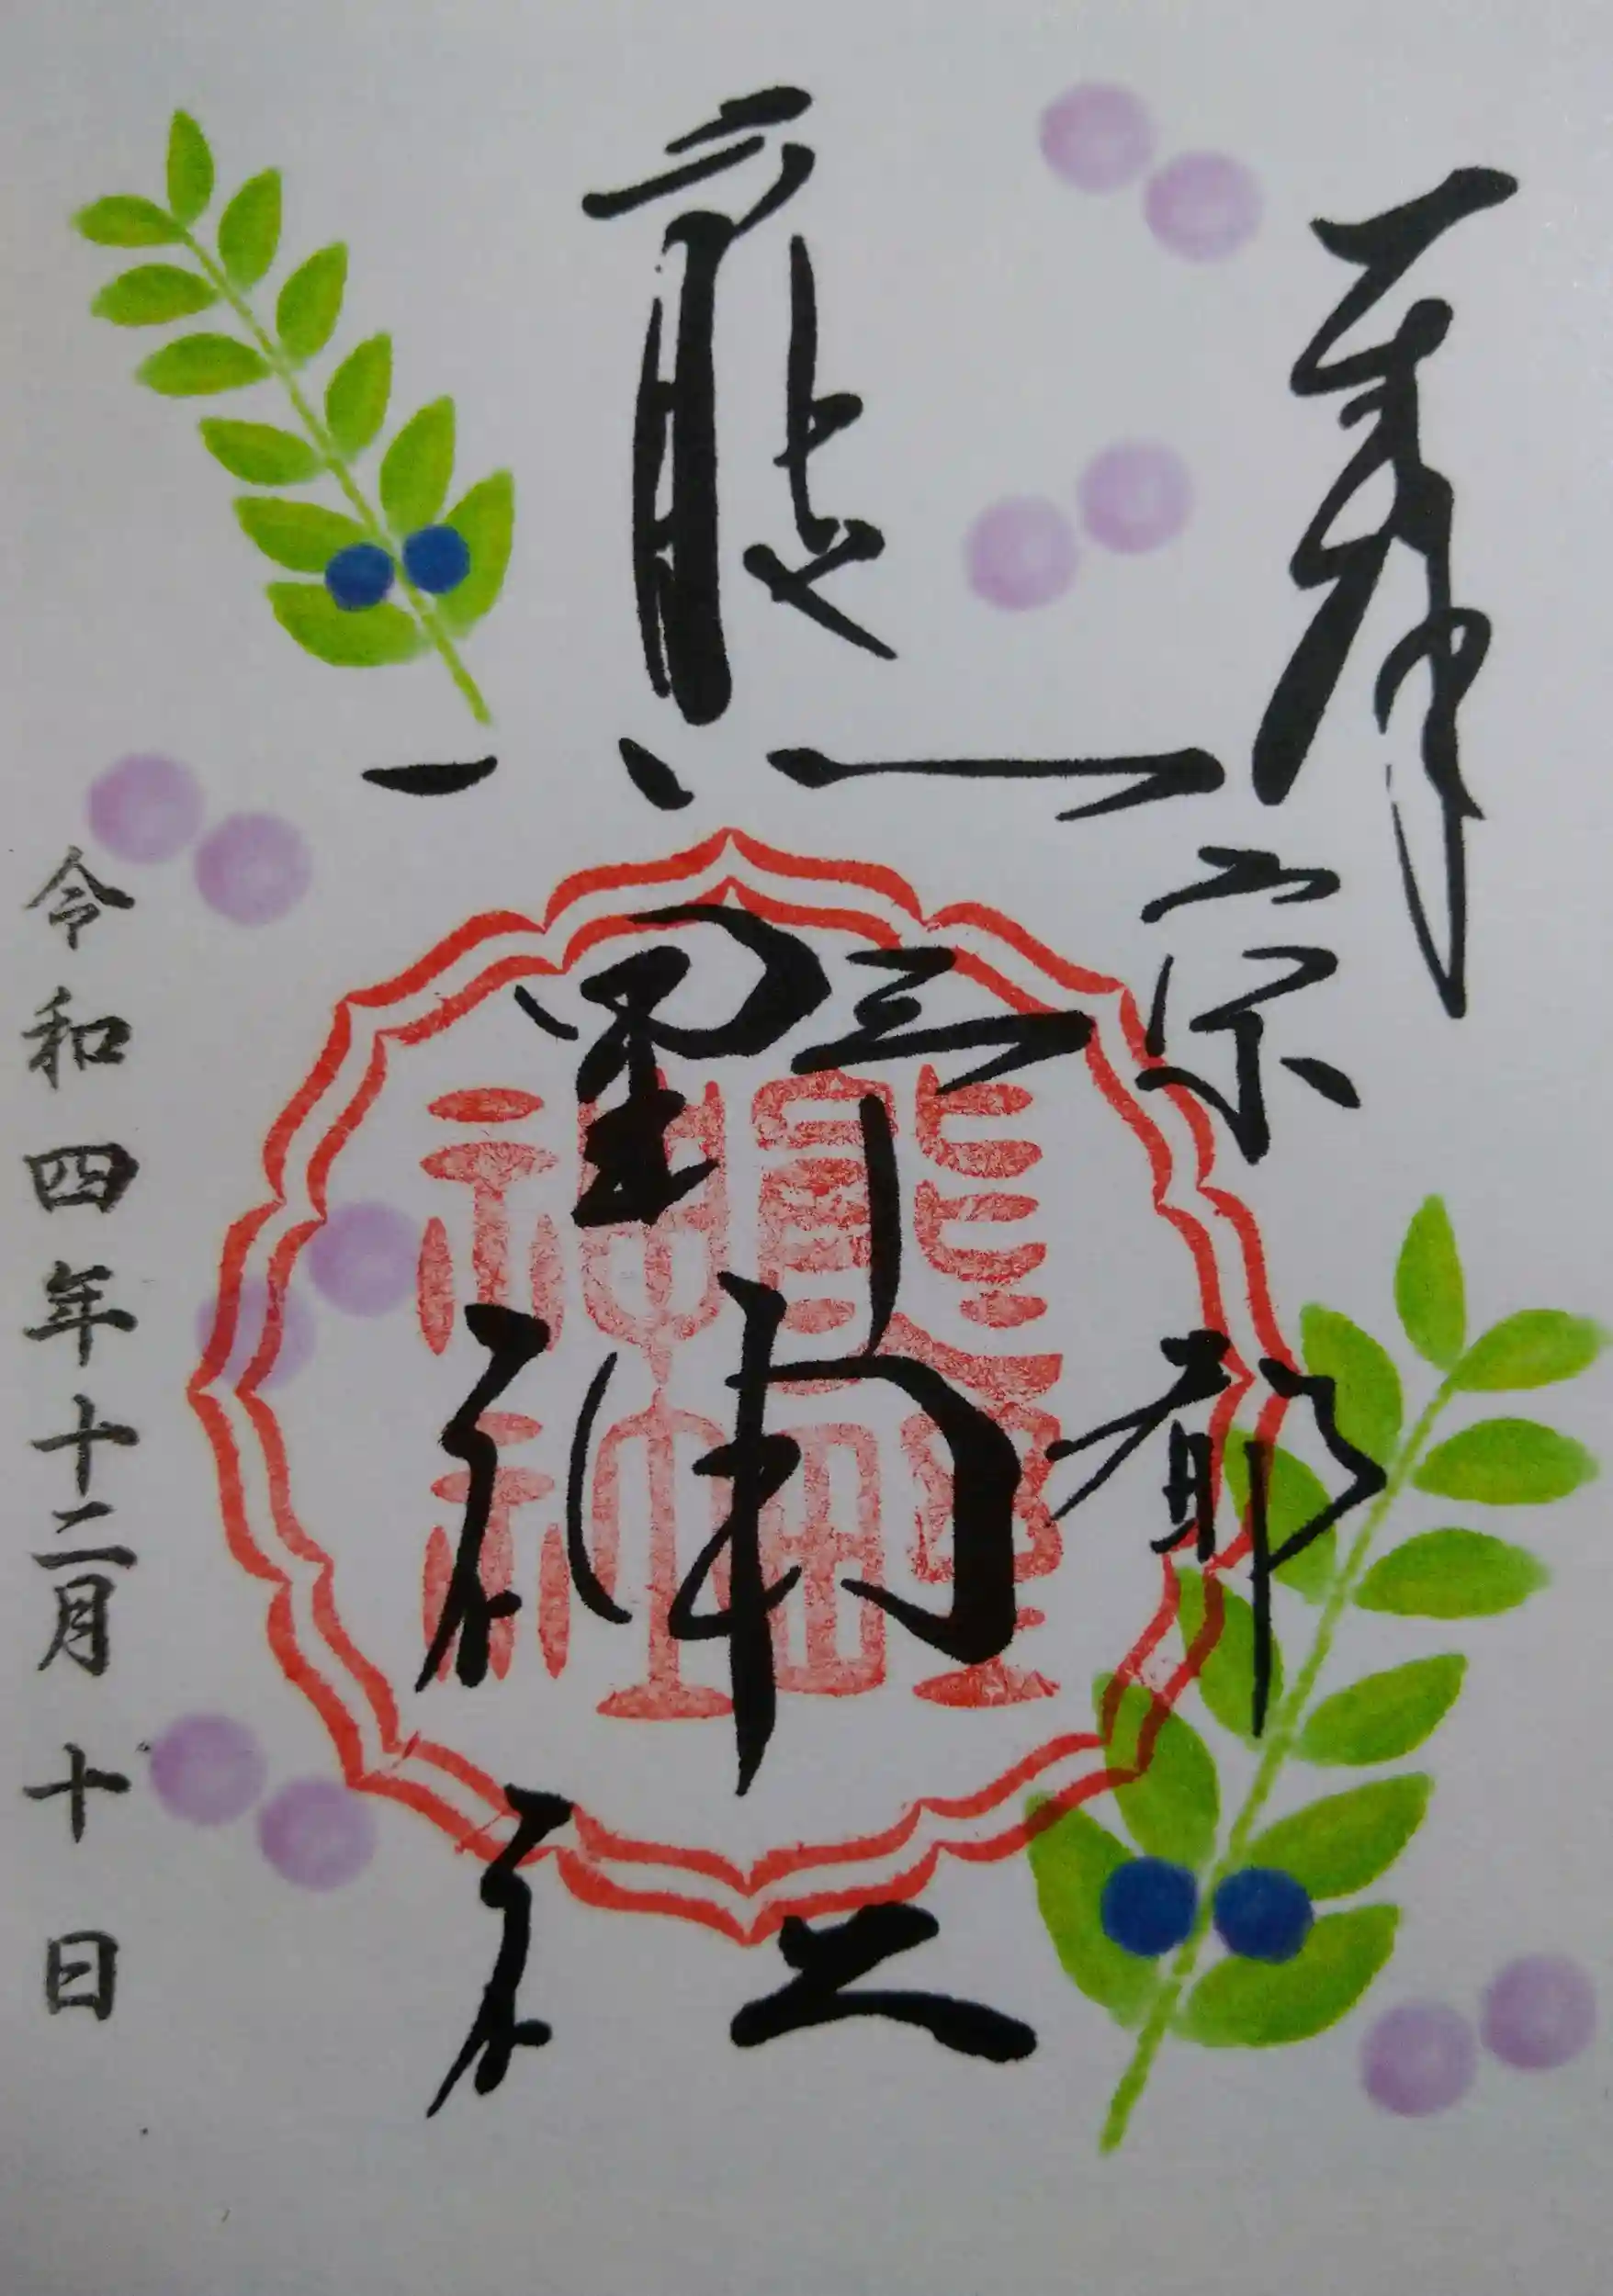 奉拝
京都
熊野神社
熊野
神社
令和四年十二月十日